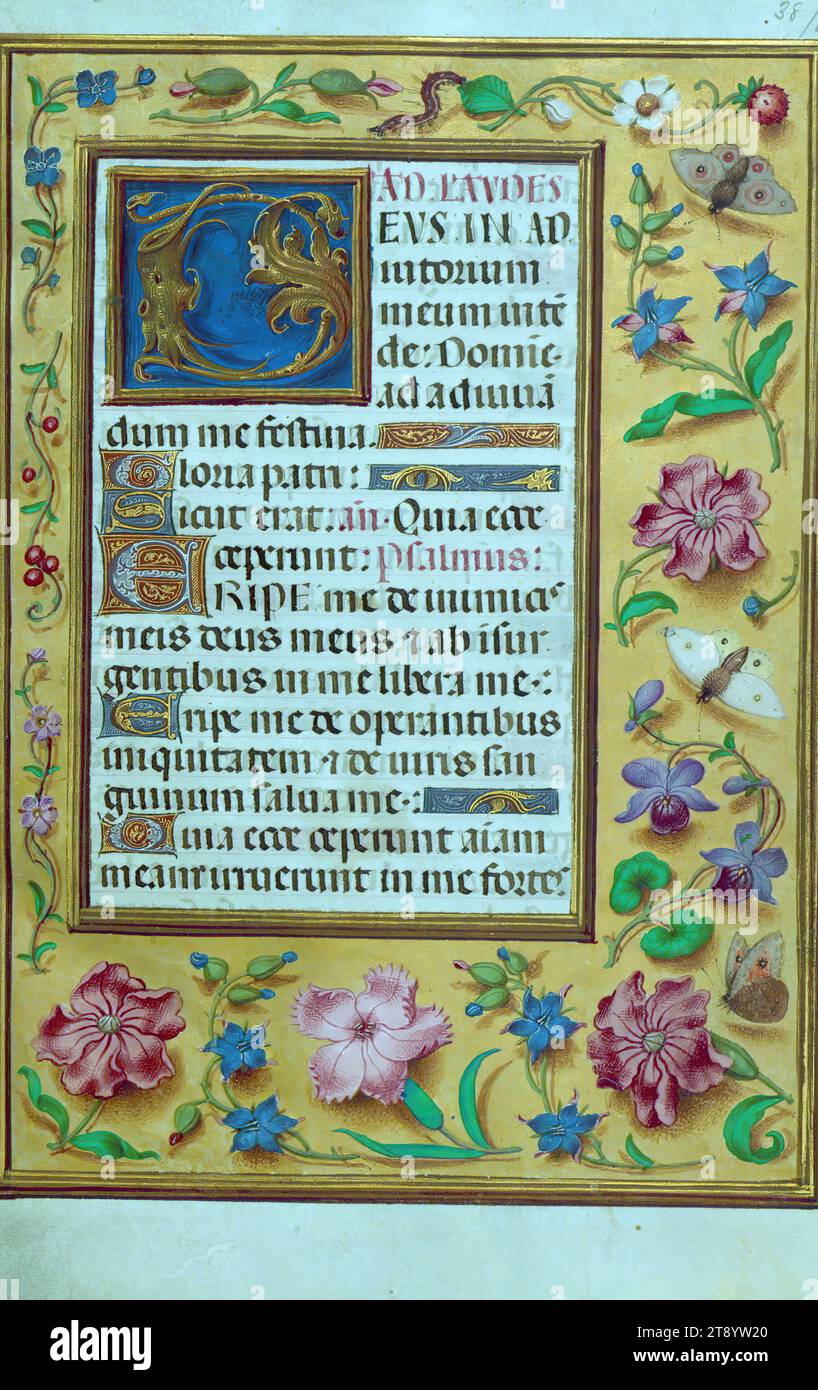 38
AD LAVDES
DEVS IN AD
iutorium
meum intē
de: Domine
ad adiuuā
dum me festina.
Gloria patri:
Sicut erat: añ. Quia ecce
ceperunt: Psalmus:
ERIPE me de inimicis
meis deus meus ⁊ ab isur
gentibus in me libera me:
Eripe me de operantibus
iniquitatem ⁊ de uiris san
guinum salua me:
Quia ecce ceperunt aīam
meam: irruerunt in me fortes
alamy
a
Image ID: 2T8YW20
www.alamy.com